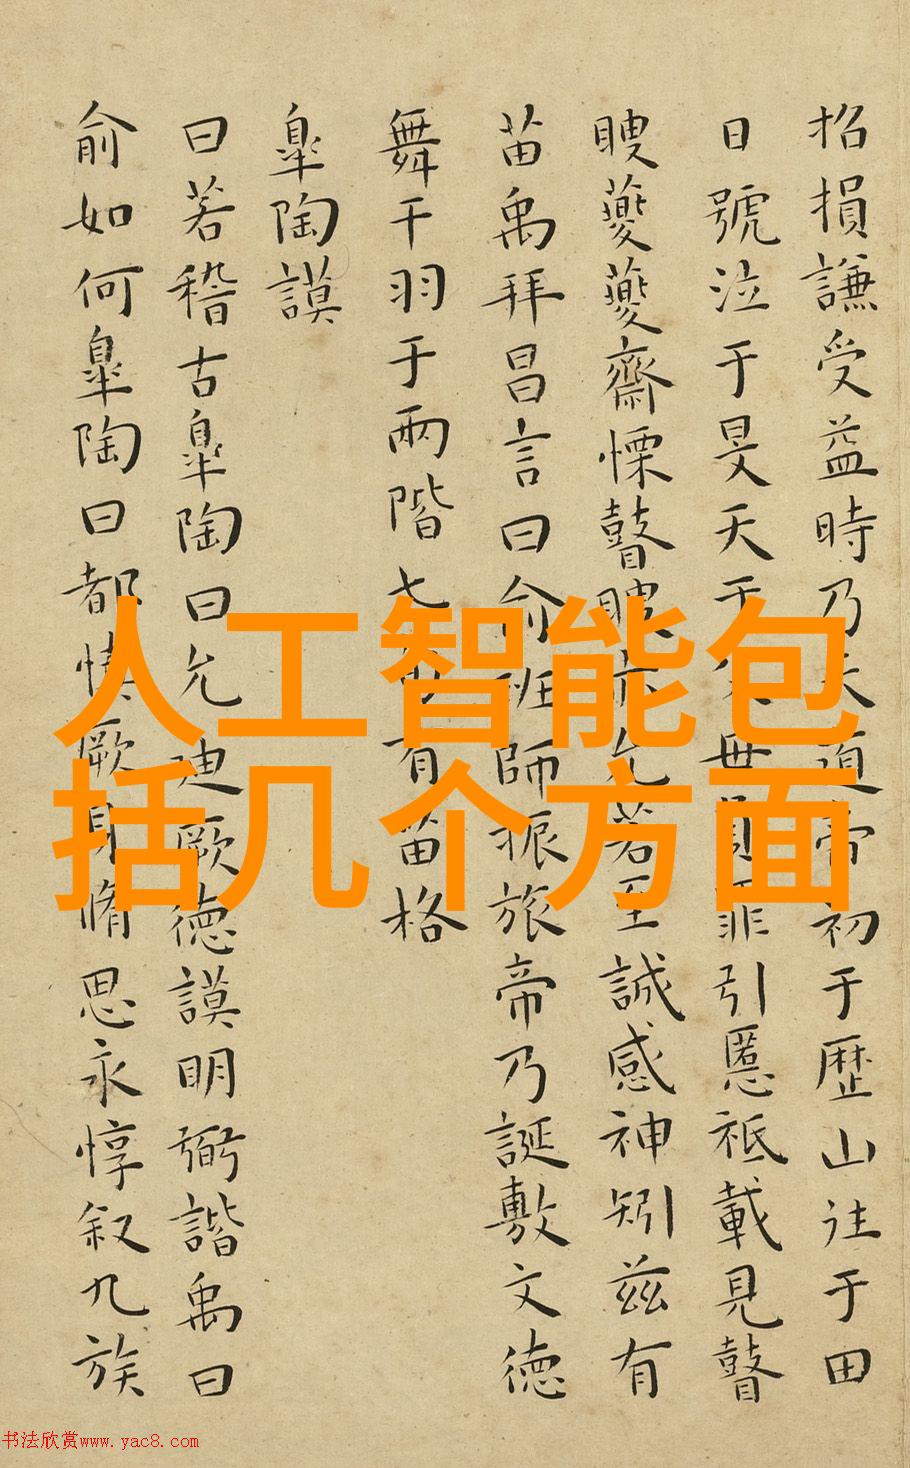 招損謙受益時乃天道帝初于歴山往于田
日號泣于旻天于父母負罪引慝祗載見瞽
瞍夔夔齋慄瞽瞍亦允若至誠感神矧兹有
苗禹拜昌言曰俞班師振旅帝乃誕敷文德
舞干羽于兩階七旬有苗格
皐陶謨
曰若稽古皐陶曰允迪厥德謨明弼諧禹曰
俞如何皐陶曰都慎厥身脩思永惇叙九族
人工智能包
括几个方面
书法欣赏www.yac8.com